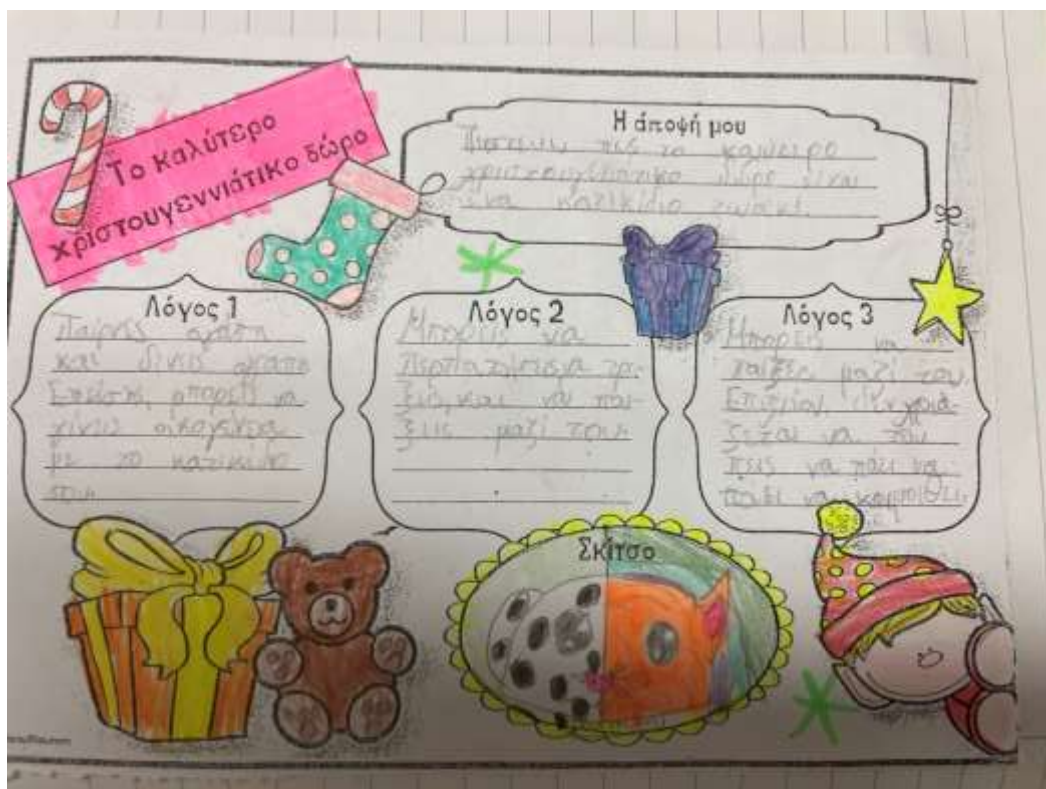 Το καλύτερο
χριστουγεννιάτικο δώρο
Η άποψή μου
Πιστεύω πως το καλύτερο
είναι
ένα κατικίδιο ζωάκι.
Λόγος 1
Παίρνεις αγάπη
και δίνεις
Επείσης, μπορείς να
γίνεις οικογένεια
με το κατικίδιο
σου.
Λόγος 2
Μπορείς να
και να παί-
ξεις μαζί του.
Λόγος 3
Μπορείς να
παίξεις μαζί του.
Επιπλέον, δεν χρειά-
ζεται να του
πεις να πάει να
να κοιμηθεί.
Σκίτσο